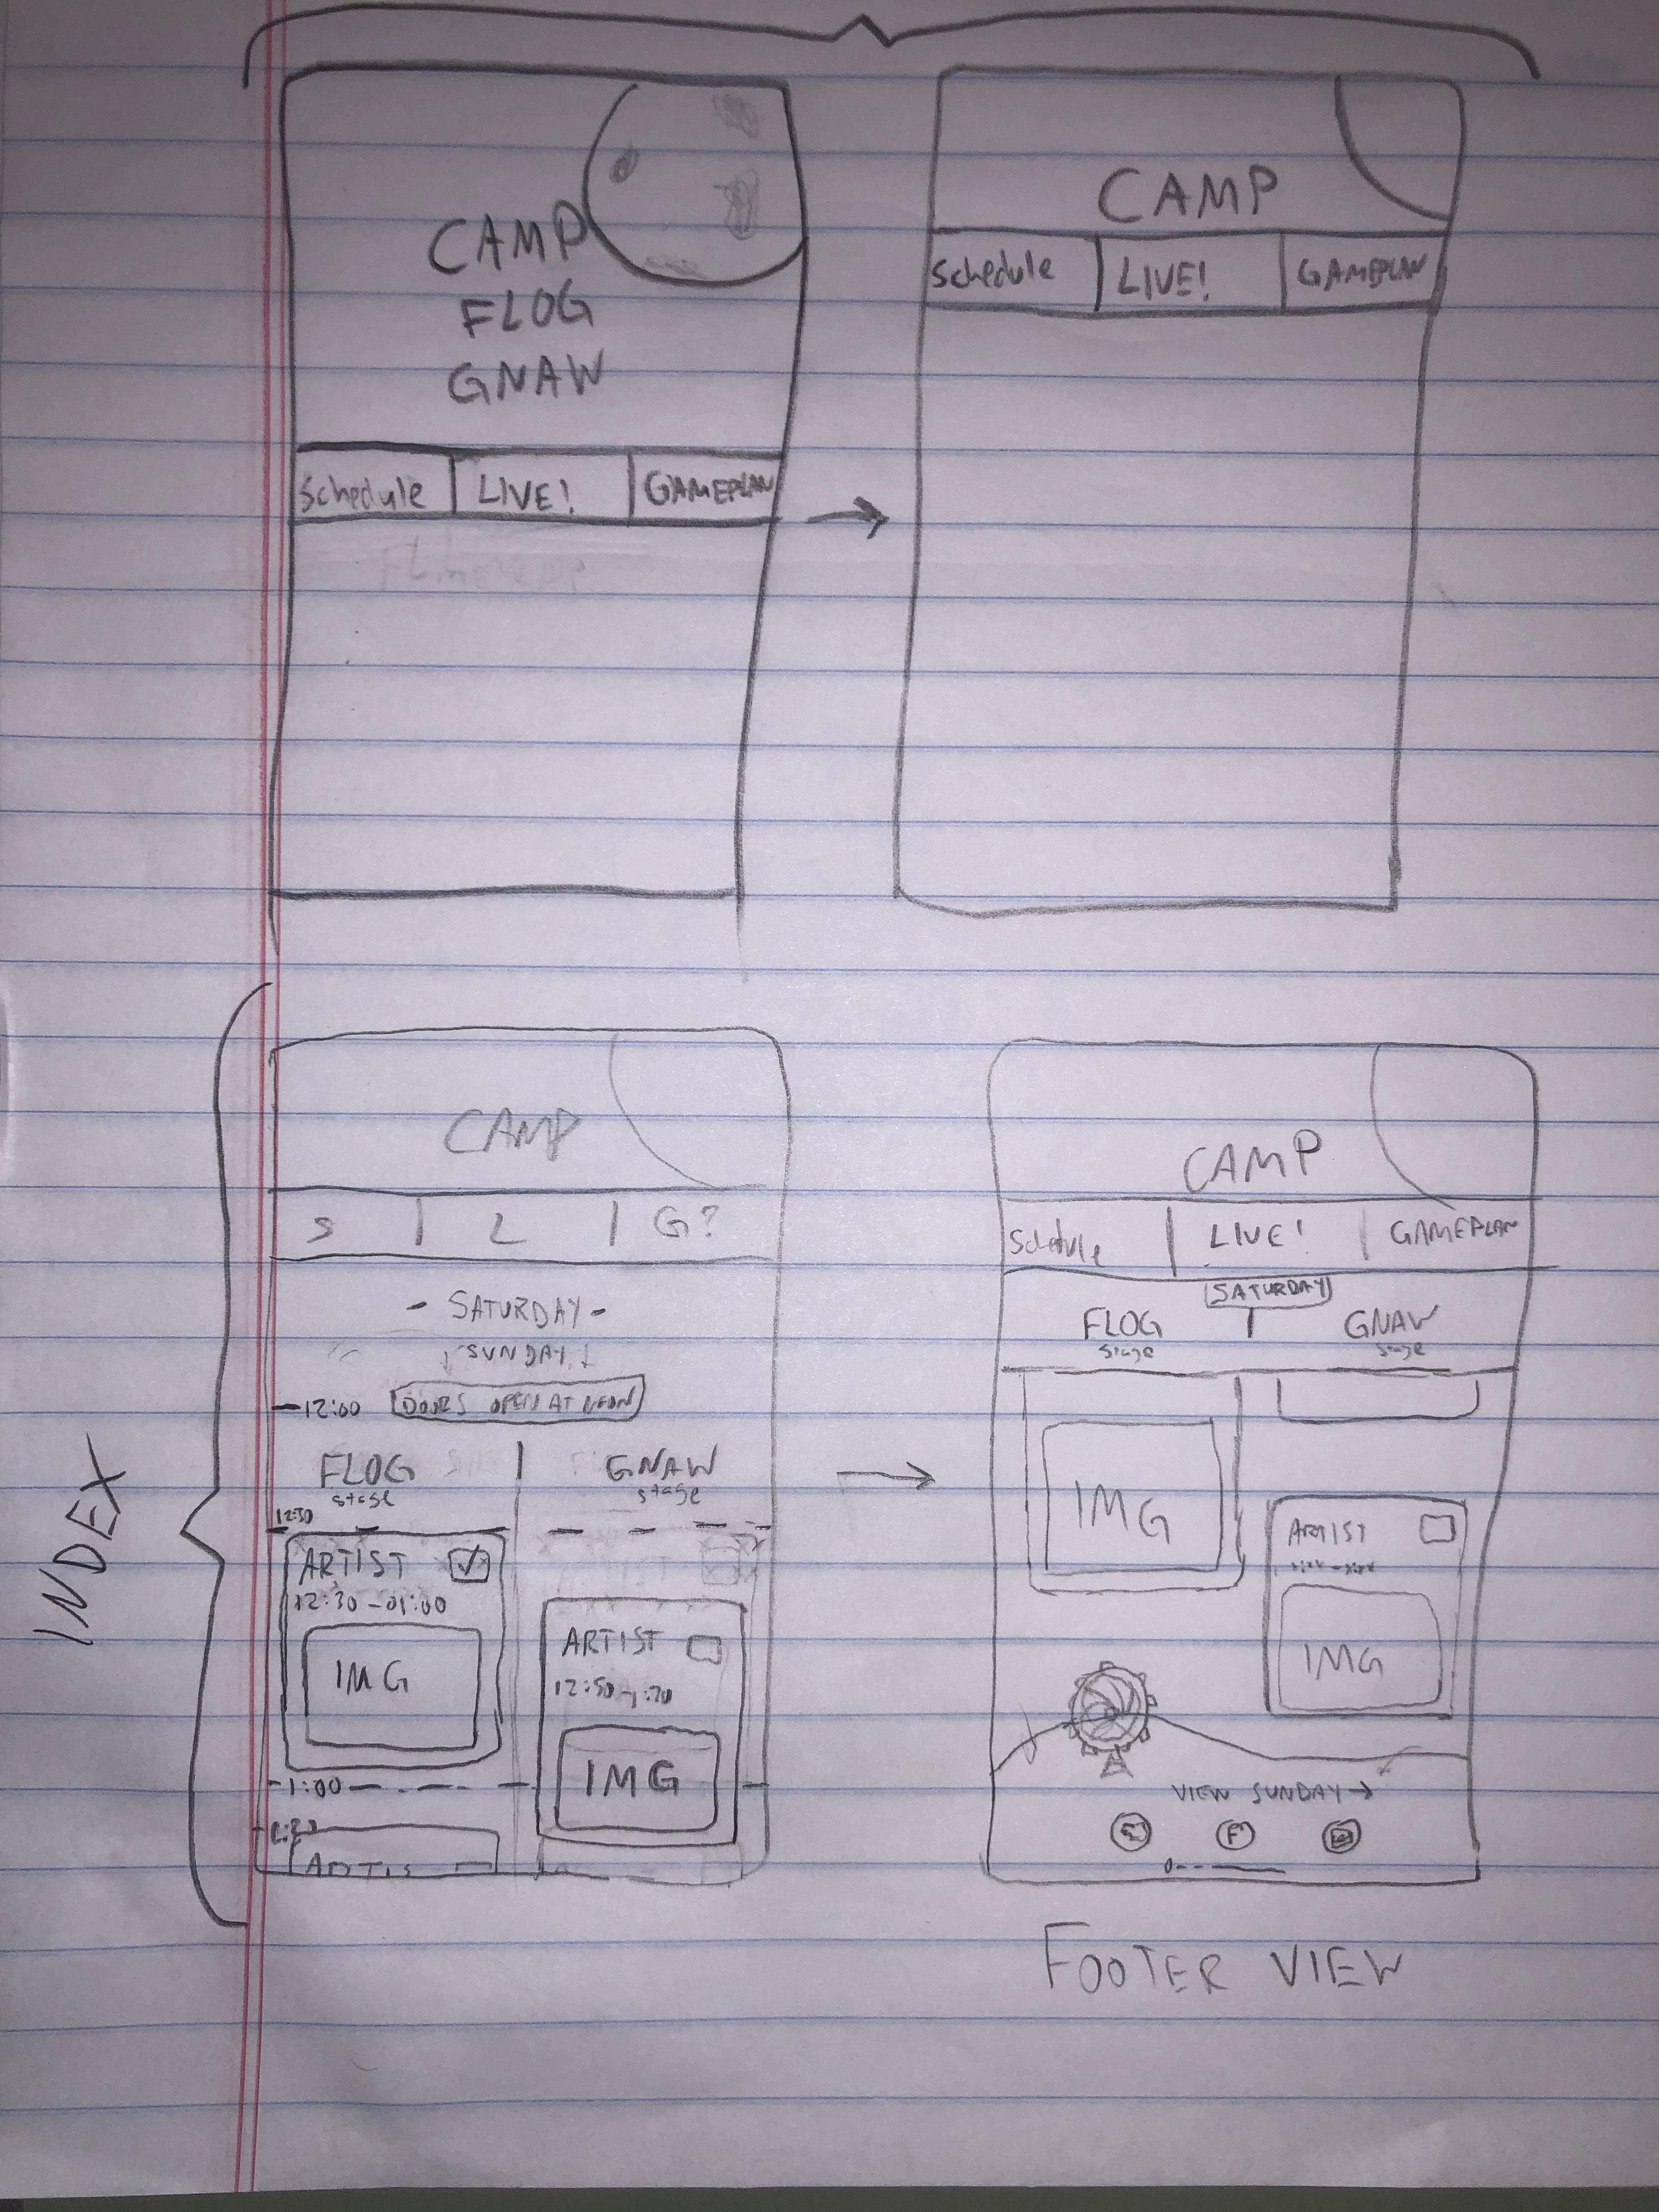 CAMP
FLOG
GNAW
Schedule LIVE! GAMEPLAN
CAMP
Schedule LIVE! GAMEPLAN
INDEX
CAMP
S L G?
- SATURDAY -
SUNDAY
12:00 DOORS OPEN AT NOON
FLOG GNAW
stage stage
12:30
ARTIST
12:30 - 01:00
IMG
ARTIST
12:50 - 1:20
IMG
1:00
ARTIS
CAMP
Schedule LIVE! GAMEPLAN
SATURDAY
FLOG GNAW
stage stage
IMG
ARTIST
IMG
VIEW SUNDAY →
F
FOOTER VIEW